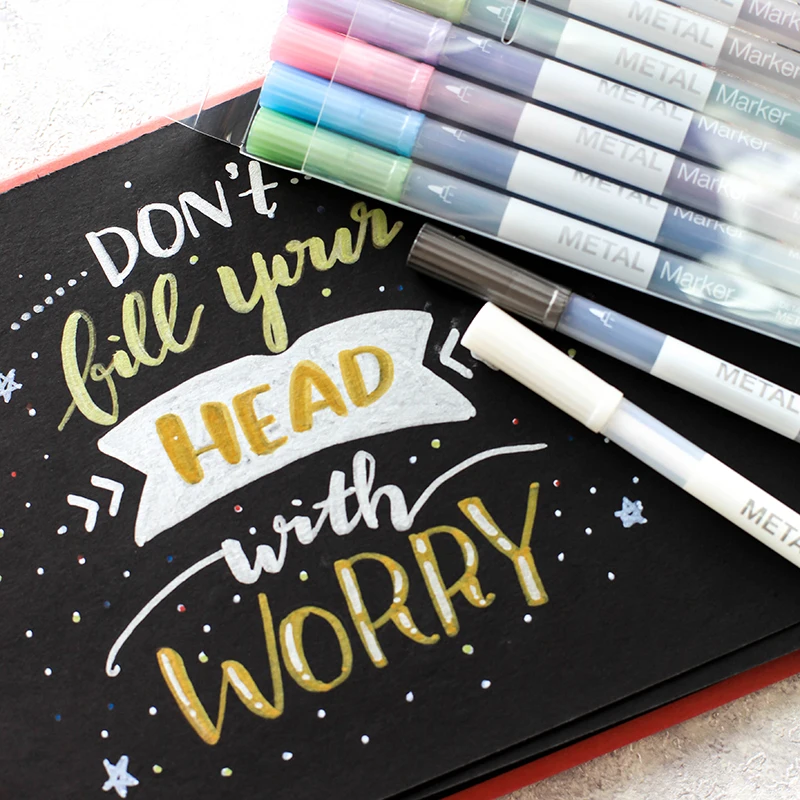 METAL Marker
METAL Marker
METAL Marker
METAL Marker
METAL Marker
METAL Marker
METAL Marker
METAL
METAL
DON't
fill your
HEAD
with
WORRY